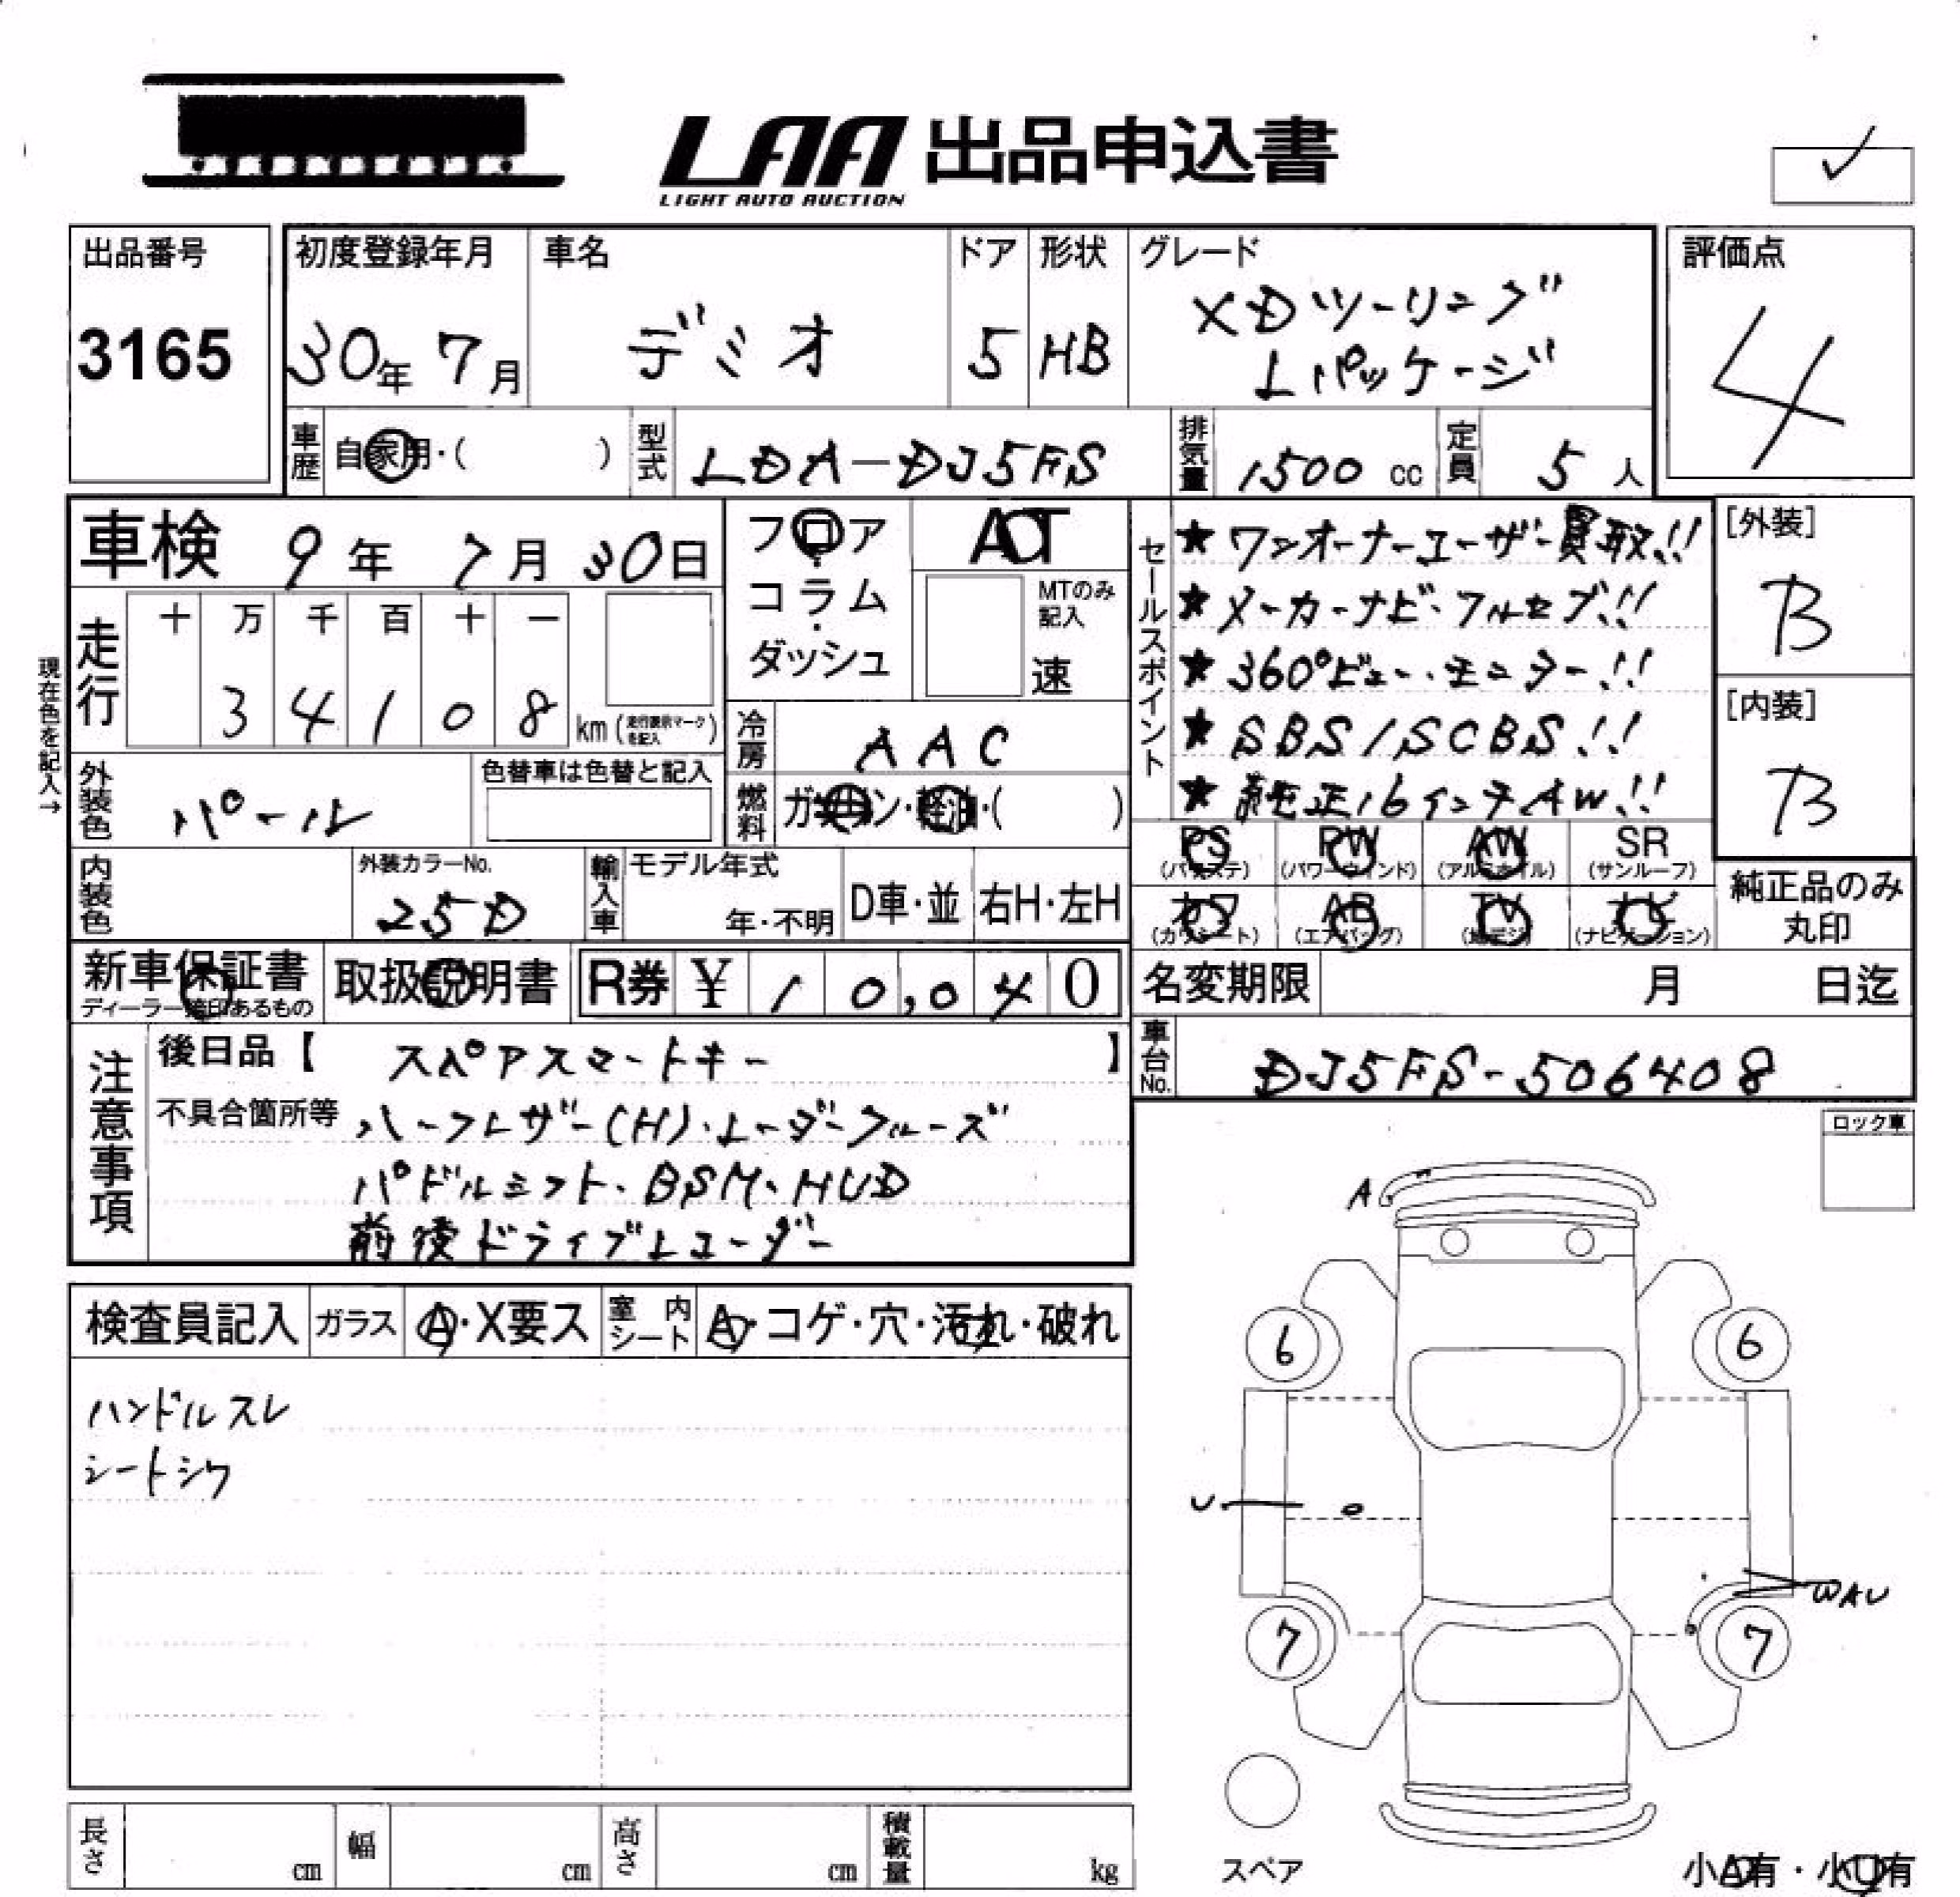 LAA 出品申込書
LIGHT AUTO AUCTION
出品番号
3165
初度登録年月
30年 7月
車名
デミオ
ドア
5
形状
HB
グレード
XDツーリング
Lパッケージ
評価点
4
車歴
自家用・( )
型式
LDA-DJ5FS
排気量
1500 cc
定員
5 人
車検 9年 7月 30日
フロア
コラム
ダッシュ
AT
MTのみ
記入
速
セールスポイント
★ワンオーナーユーザー買取!!
★メーカーナビ・フルセグ!!
★360°ビュー・モニター!!
★SBS/SCBS!!
★純正16インチAW!!
[外装]
B
[内装]
B
現在色を記入→
走行
十 万 千 百 十 一
3 4 1 0 8 km (走行表示マークを記入)
冷房
AAC
外装色
パール
色替車は色替と記入
燃料
ガソリン・軽油・( )
PS
(パワステ)
PW
(パワーウインド)
AW
(アルミホイル)
SR
(サンルーフ)
内装色
外装カラーNo.
25D
輸入車
モデル年式
年・不明
D車・並
右H・左H
カワ
(カワシート)
AB
(エアバッグ)
TV
(地デジ)
ナビ
(ナビゲーション)
純正品のみ
丸印
新車保証書
ディーラー捺印あるもの
取扱説明書
R券 ¥ 10,040
名変期限 月 日迄
車台No.
DJ5FS-506408
注意事項
後日品【 スペアスマートキー 】
不具合箇所等 ハーフレザー(H)・レーダークルーズ
パドルシフト・BSM・HUD
前後ドライブレコーダー
ロック車
A
検査員記入 ガラス A・X要ス 室内シート A・コゲ・穴・汚れ・破れ
ハンドルスレ
シートシワ
6
6
U
WAU
7
7
スペア
小A有・小U有
長さ cm 幅 cm 高さ cm 積載量 kg